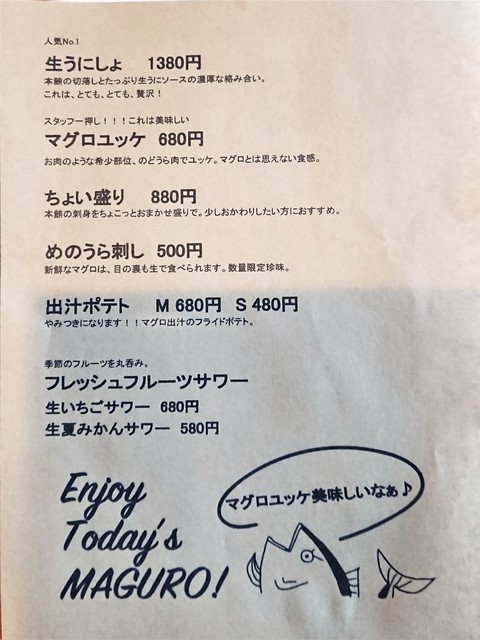 人気No.1
生うにしょ 1380円
本鮪の切落しとたっぷり生うにソースの濃厚な絡み合い。
これは、とても、とても、贅沢！
スタッフ一押し！！！これは美味しい
マグロユッケ 680円
お肉のような希少部位、のどうら肉でユッケ。マグロとは思えない食感。
ちょい盛り 880円
本鮪の刺身をちょこっとおまかせ盛りで。少しおかわりしたい方におすすめ。
めのうら刺し 500円
新鮮なマグロは、目の裏も生で食べられます。数量限定珍味。
出汁ポテト M 680円 S 480円
やみつきになります！！マグロ出汁のフライドポテト。
季節のフルーツを丸呑み。
フレッシュフルーツサワー
生いちごサワー 680円
生夏みかんサワー 580円
マグロユッケ美味しいなぁ♪
Enjoy
Today's
MAGURO!